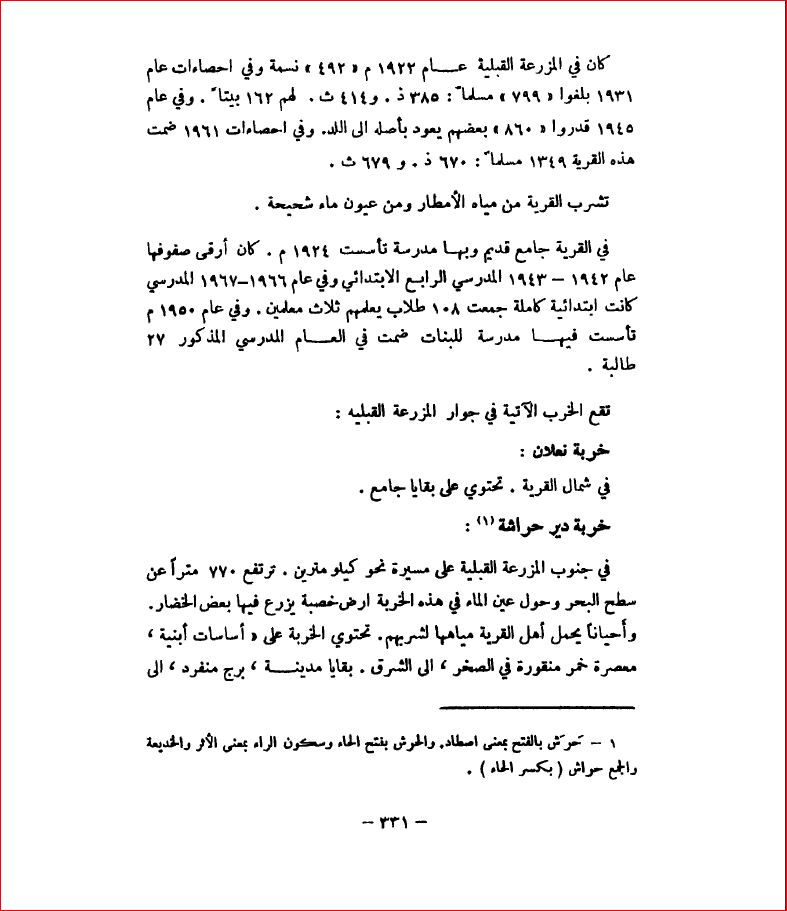 كان في المزرعة القبلية عـــام ١٩٢٢ م « ٤٩٢ » نسمة وفي احصاءات عام
١٩٣١ بلغوا « ٧٩٩ » مسلماً : ٣٨٥ ذ . و ٤١٤ ث . لهم ١٦٢ بيتاً . وفي عام
١٩٤٥ قدروا « ٨٦٠ » بعضهم يعود بأصله الى اللد. وفي احصاءات ١٩٦١ ضمت
هذه القرية ١٣٤٩ مسلماً : ٦٧٠ ذ . و ٦٧٩ ث .
تشرب القرية من مياه الأمطار ومن عيون ماء شحيحة .
في القرية جامع قديم وبها مدرسة تأسست ١٩٢٤ م . كان أرقى صفوفها
عام ١٩٤٢ – ١٩٤٣ المدرسي الرابع الابتدائي وفي عام ١٩٦٦–١٩٦٧ المدرسي
كانت ابتدائية كاملة جمعت ١٠٨ طلاب يعلمهم ثلاث معلمين . وفي عام ١٩٥٠ م
تأسست فيهـــا مدرسة للبنات ضمت في العـــام المدرسي المذكور ٢٧
طالبة .
تقع الخرب الآتية في جوار المزرعة القبليه :
خربة نعلان :
في شمال القرية . تحتوي على بقايا جامع .
خربة دير حراشة (١) :
في جنوب المزرعة القبلية على مسيرة نحو كيلو مترين . ترتفع ٧٧٠ متراً عن
سطح البحر وحول عين الماء في هذه الخربة ارض خصبة يزرع فيها بعض الخضار.
وأحياناً يحمل أهل القرية مياهها لشربهم. تحتوي الخربة على « أساسات أبنية ،
معصرة خمر منقورة في الصخر ، الى الشرق . بقايا مدينـــة ، برج منفرد ، الى
١ – حَرَش بالفتح بمعنى اصطاد. والحرش بفتح الحاء وسكون الراء بمعنى الأثر والخديعة
والجمع حراش ( بكسر الحاء ) .
– ٣٣١ –